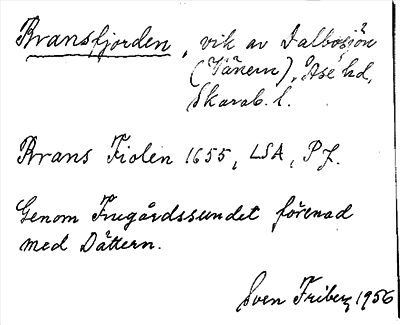 Bransfjorden, vik av Dalbosjön
(Vänern), Åse hd,
Skarab. l.
Brans Fiolen 1655, LSA, P.J.
Genom Frugårdssundet förenad
med Dättern.
Sven Friberg 1956